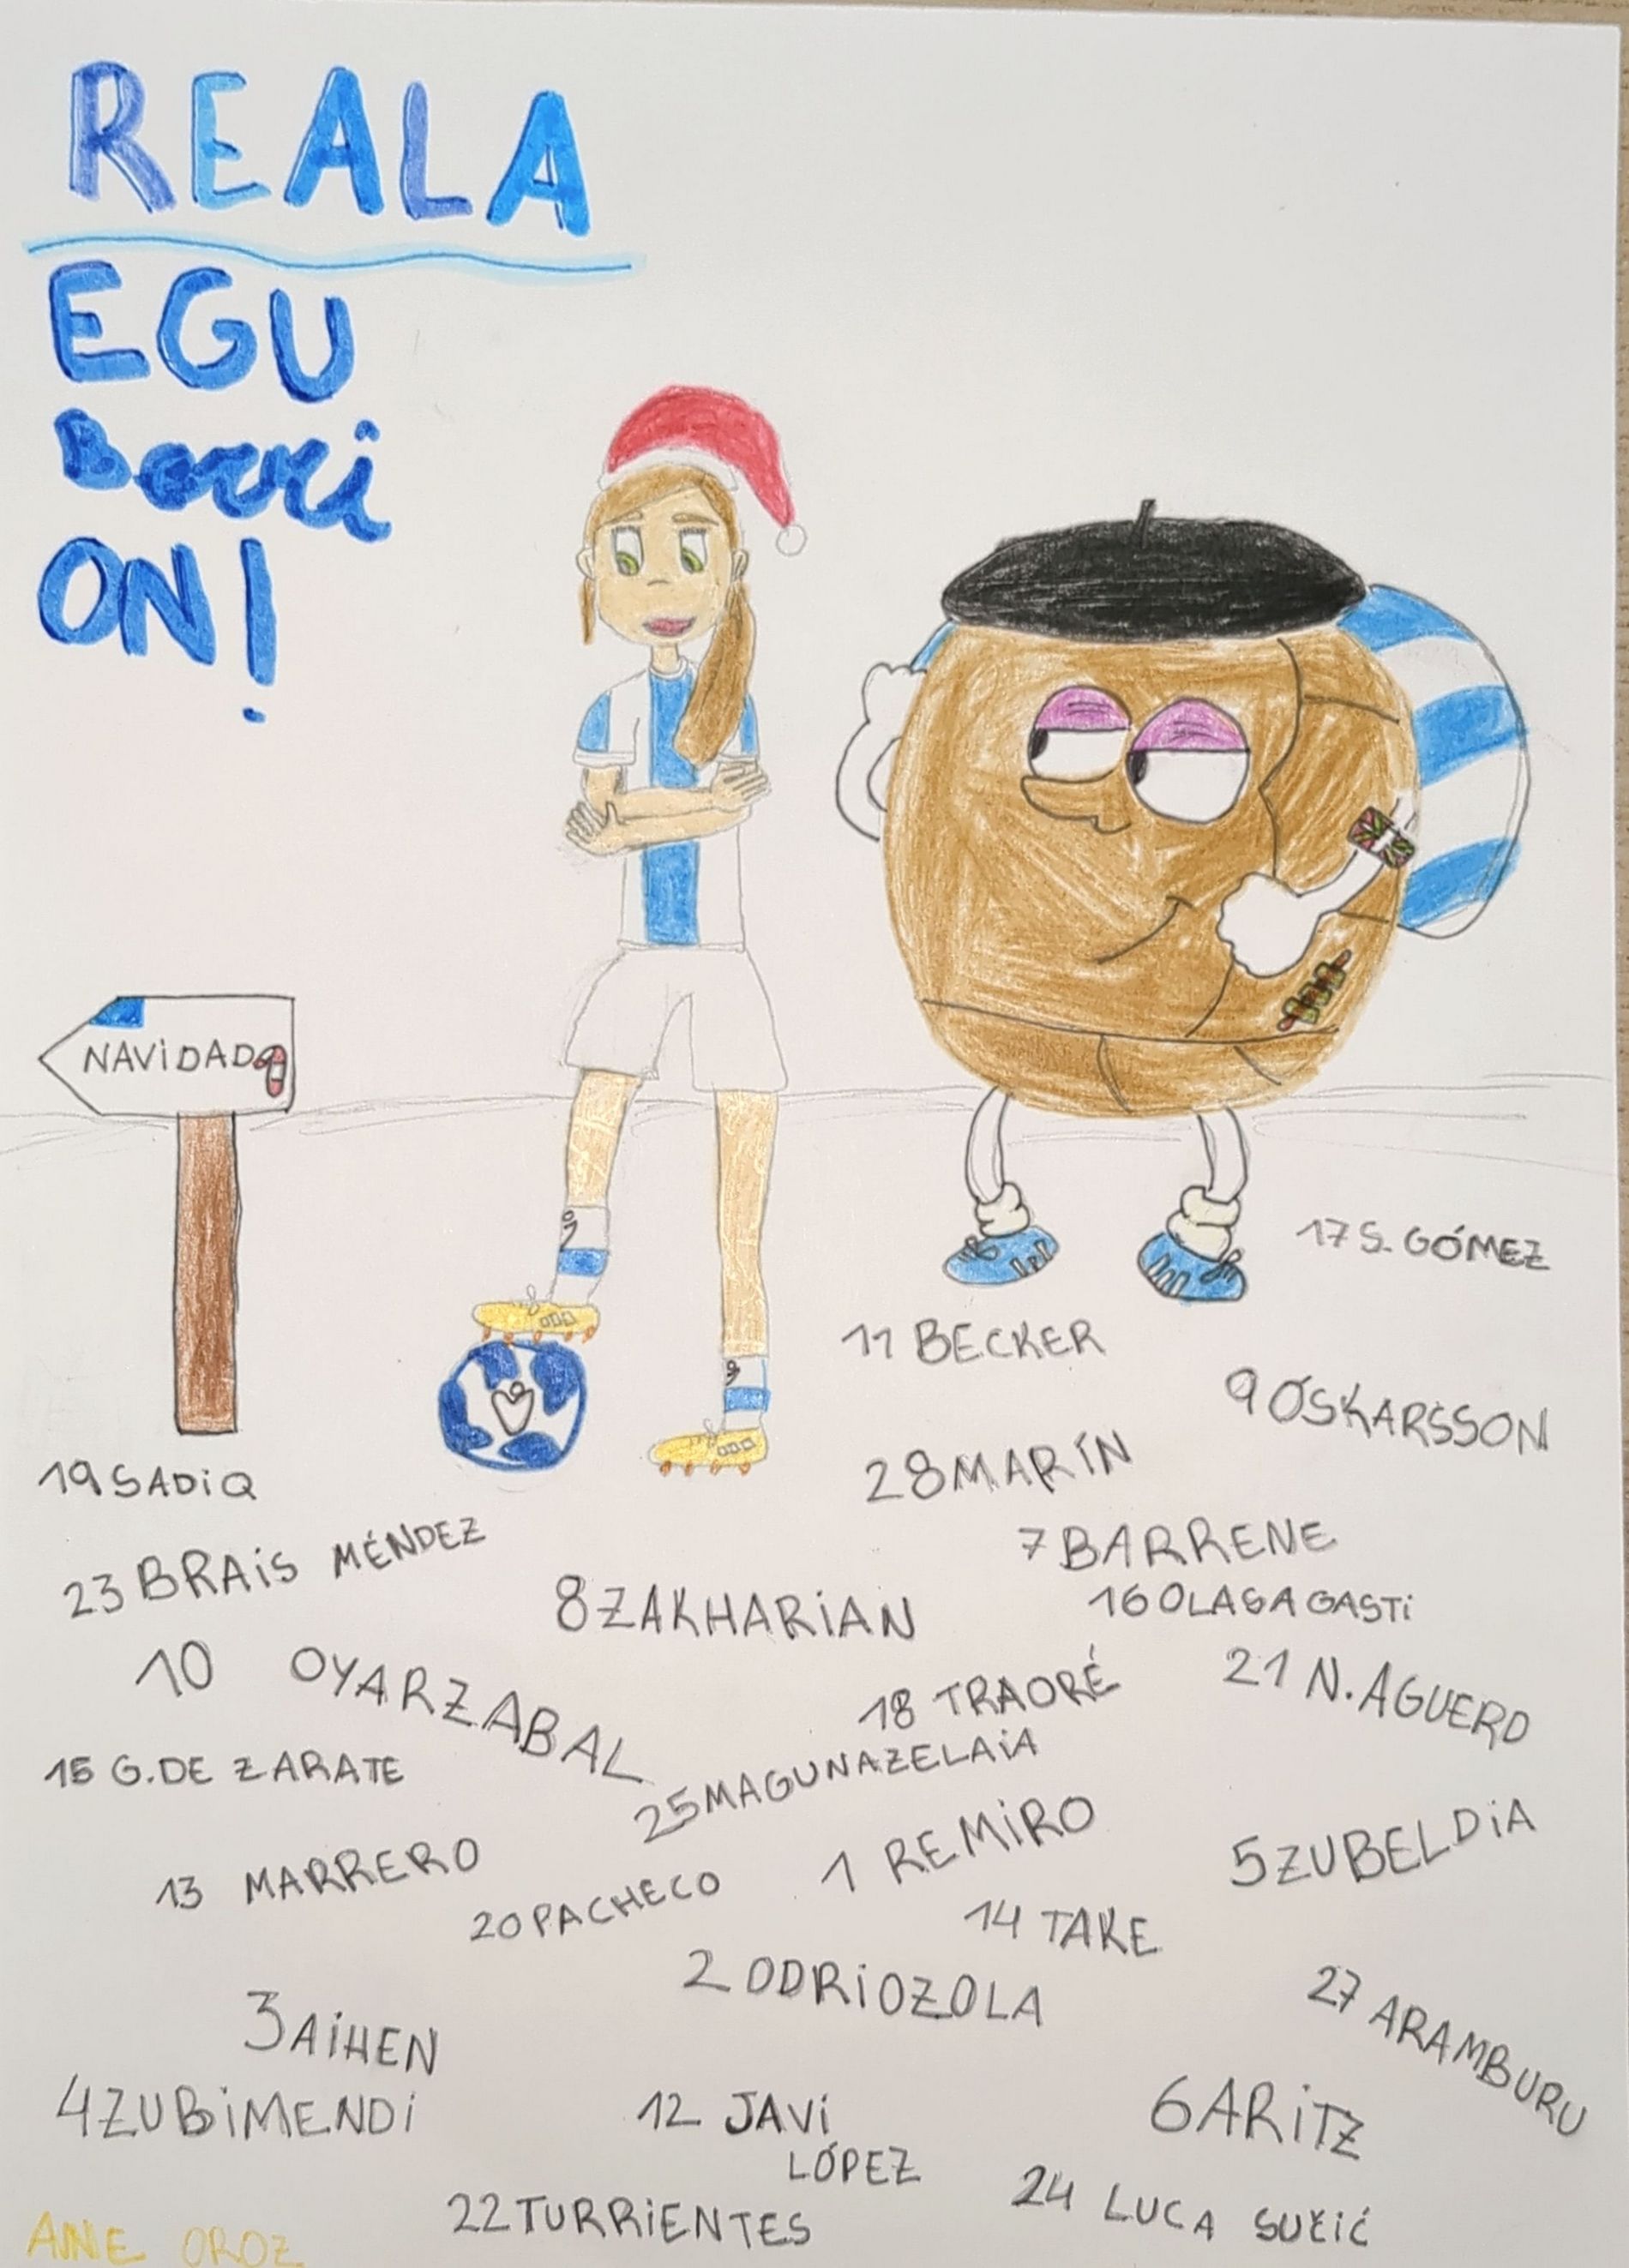 REALA
EGU
Borri
ON!
NAVIDAD
17 S. GÓMEZ
11 BECKER
9 ÓSKARSSON
28 MARÍN
19 SADIQ
23 BRAIS MÉNDEZ
7 BARRENE
8 ZAKHARIAN
16 OLASAGASTI
10 OYARZABAL
18 TRAORÉ
21 N. AGUERD
15 G. DE ZARATE
25 MAGUNAZELAIA
13 MARRERO
20 PACHECO
1 REMIRO
5 ZUBELDIA
14 TAKE
2 ODRIOZOLA
27 ARAMBURU
3 AIHEN
4 ZUBIMENDI
12 JAVI
LÓPEZ
6 ARITZ
22 TURRIENTES
24 LUCA SUČIĆ
ANE OROZ